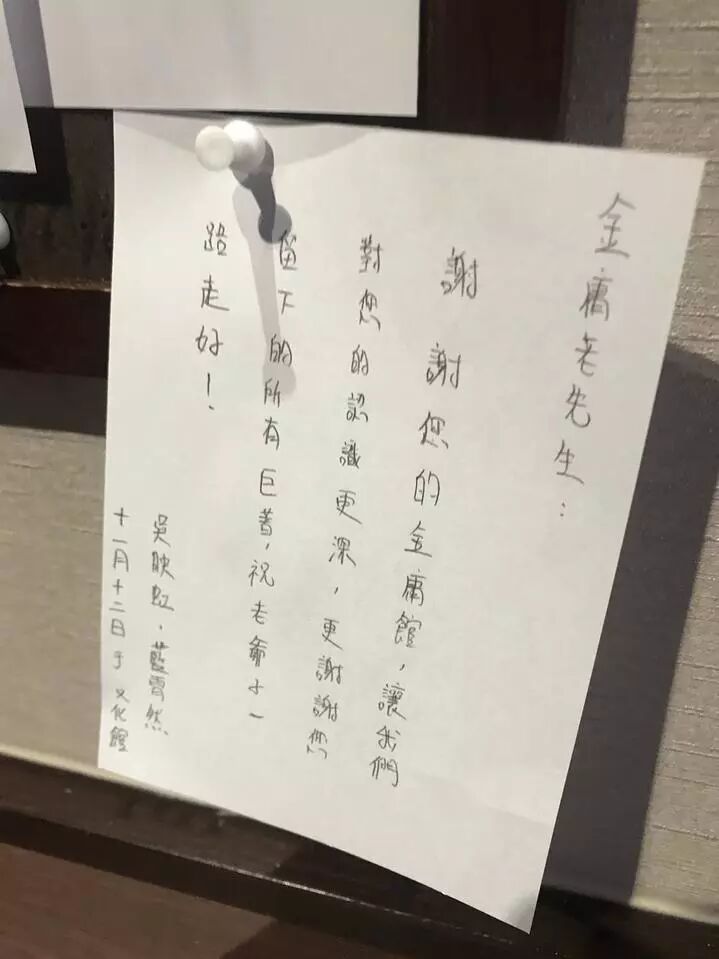 金庸老先生：
謝謝您的金庸館，讓我們
對您的認識更深，更謝謝您
留下的所有巨著，祝老爺子一
路走好！
吳映虹，藍霄然
十一月十二日于文化館